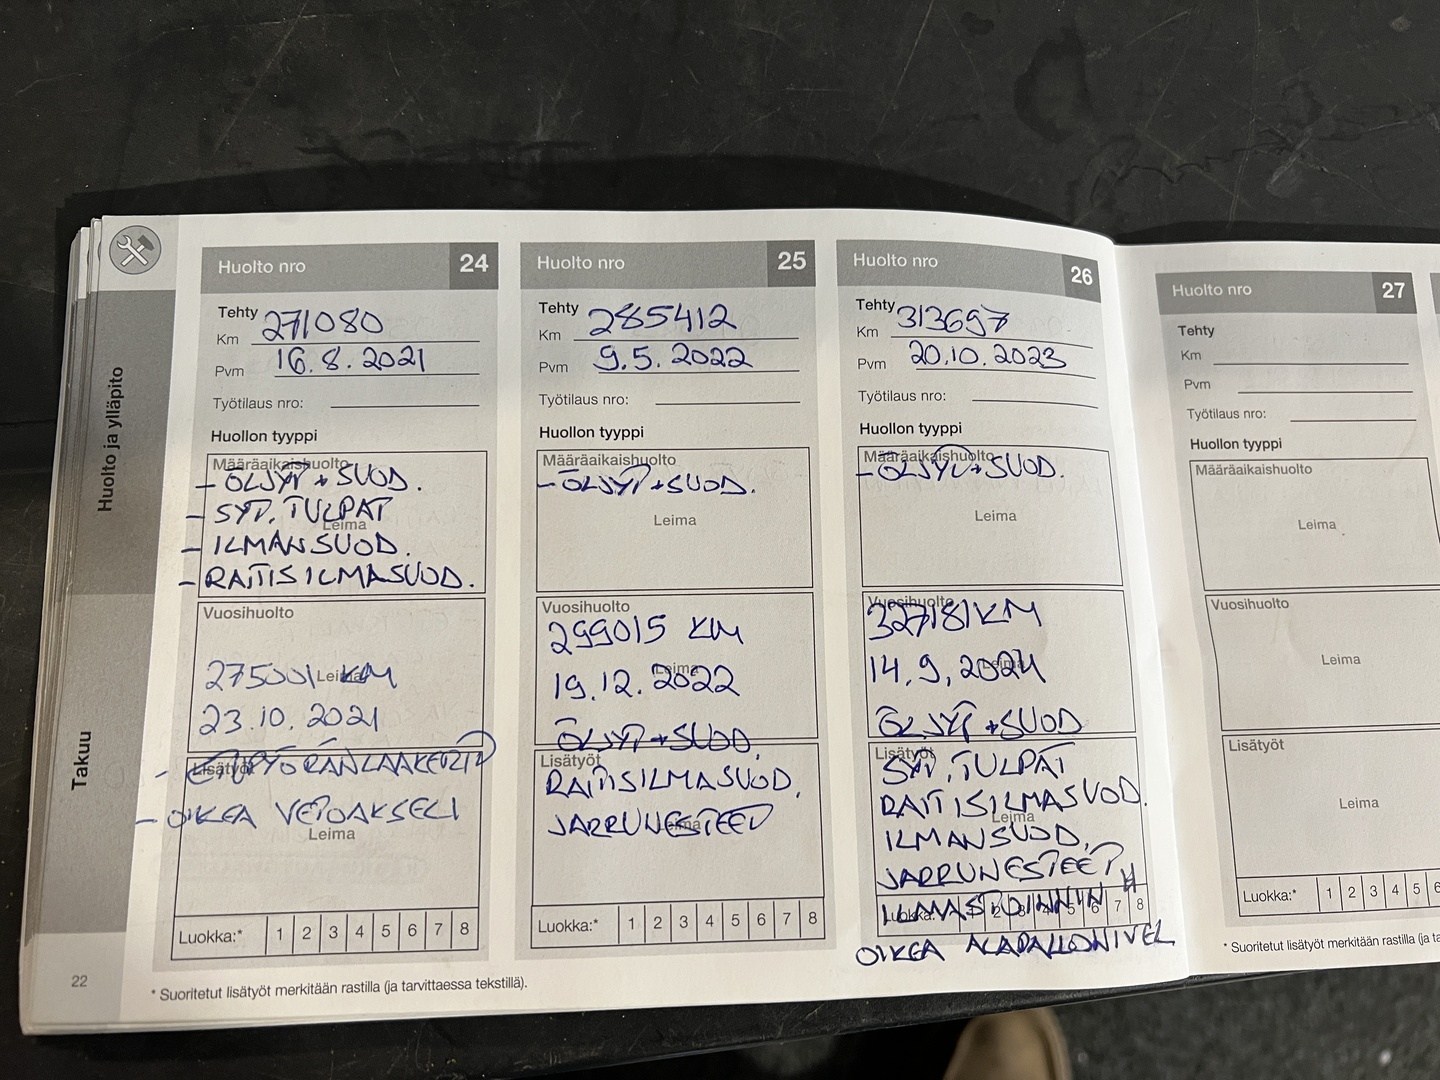 Huolto ja ylläpito
Takuu
22
Huolto nro 24
Tehty
Km 271080
Pvm 16.8.2021
Työtilaus nro:
Huollon tyyppi
Määräaikaishuolto
- ÖLJYT + SUOD.
- SYT. TULPAT
Leima
- ILMANSUOD.
- RAITISILMASUOD.
Vuosihuolto
275001 KM
Leima
23.10.2021
Lisätyöt
- ETUPYÖRÄNLAAKERIT
- OIKEA VETOAKSELI
Leima
Luokka:* 1 2 3 4 5 6 7 8
* Suoritetut lisätyöt merkitään rastilla (ja tarvittaessa tekstillä).
Huolto nro 25
Tehty
Km 285412
Pvm 9.5.2022
Työtilaus nro:
Huollon tyyppi
Määräaikaishuolto
- ÖLJYT + SUOD.
Leima
Vuosihuolto
299015 KM
Leima
19.12.2022
ÖLJYT + SUOD.
Lisätyöt
RAITISILMASUOD.
JARRUNESTEET
Leima
Luokka:* 1 2 3 4 5 6 7 8
Huolto nro 26
Tehty
Km 313697
Pvm 20.10.2023
Työtilaus nro:
Huollon tyyppi
Määräaikaishuolto
- ÖLJYT + SUOD.
Leima
Vuosihuolto
327181 KM
Leima
14.9.2024
ÖLJYT + SUOD
Lisätyöt
SYT. TULPAT
RAITISILMASUOD.
Leima
ILMANSUOD.
JARRUNESTEET
ILMASTOINNIN H
Luokka:* 1 2 3 4 5 6 7 8
OIKEA ALAPALLONIVEL
Huolto nro 27
Tehty
Km
Pvm
Työtilaus nro:
Huollon tyyppi
Määräaikaishuolto
Leima
Vuosihuolto
Leima
Lisätyöt
Leima
Luokka:* 1 2 3 4 5 6
* Suoritetut lisätyöt merkitään rastilla (ja ta